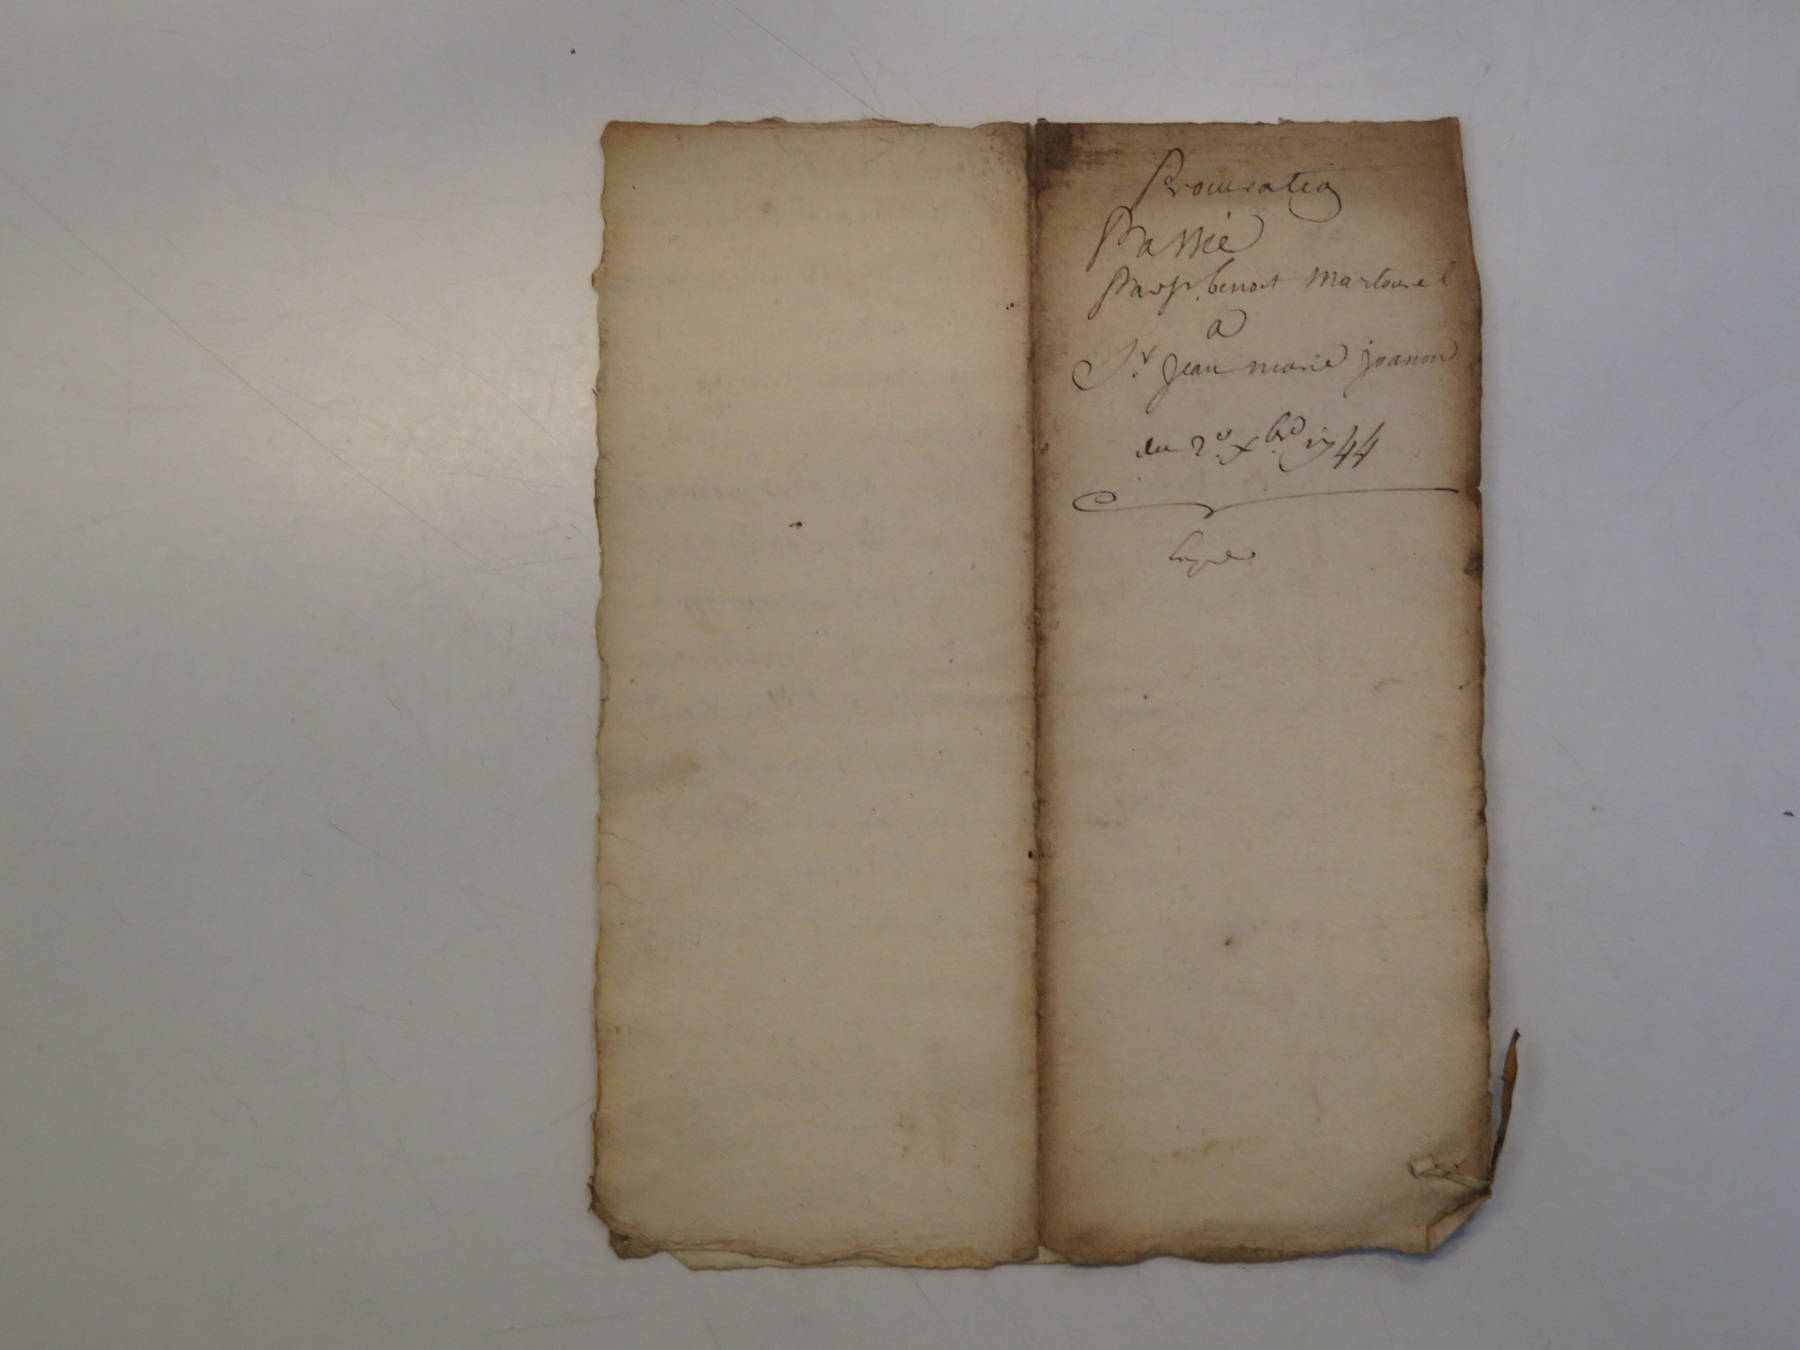 Procuration
Passée
Par Sr. benoit Martourel
a
Sr. Jean marie joanon
du 2e. Xbre. 1744